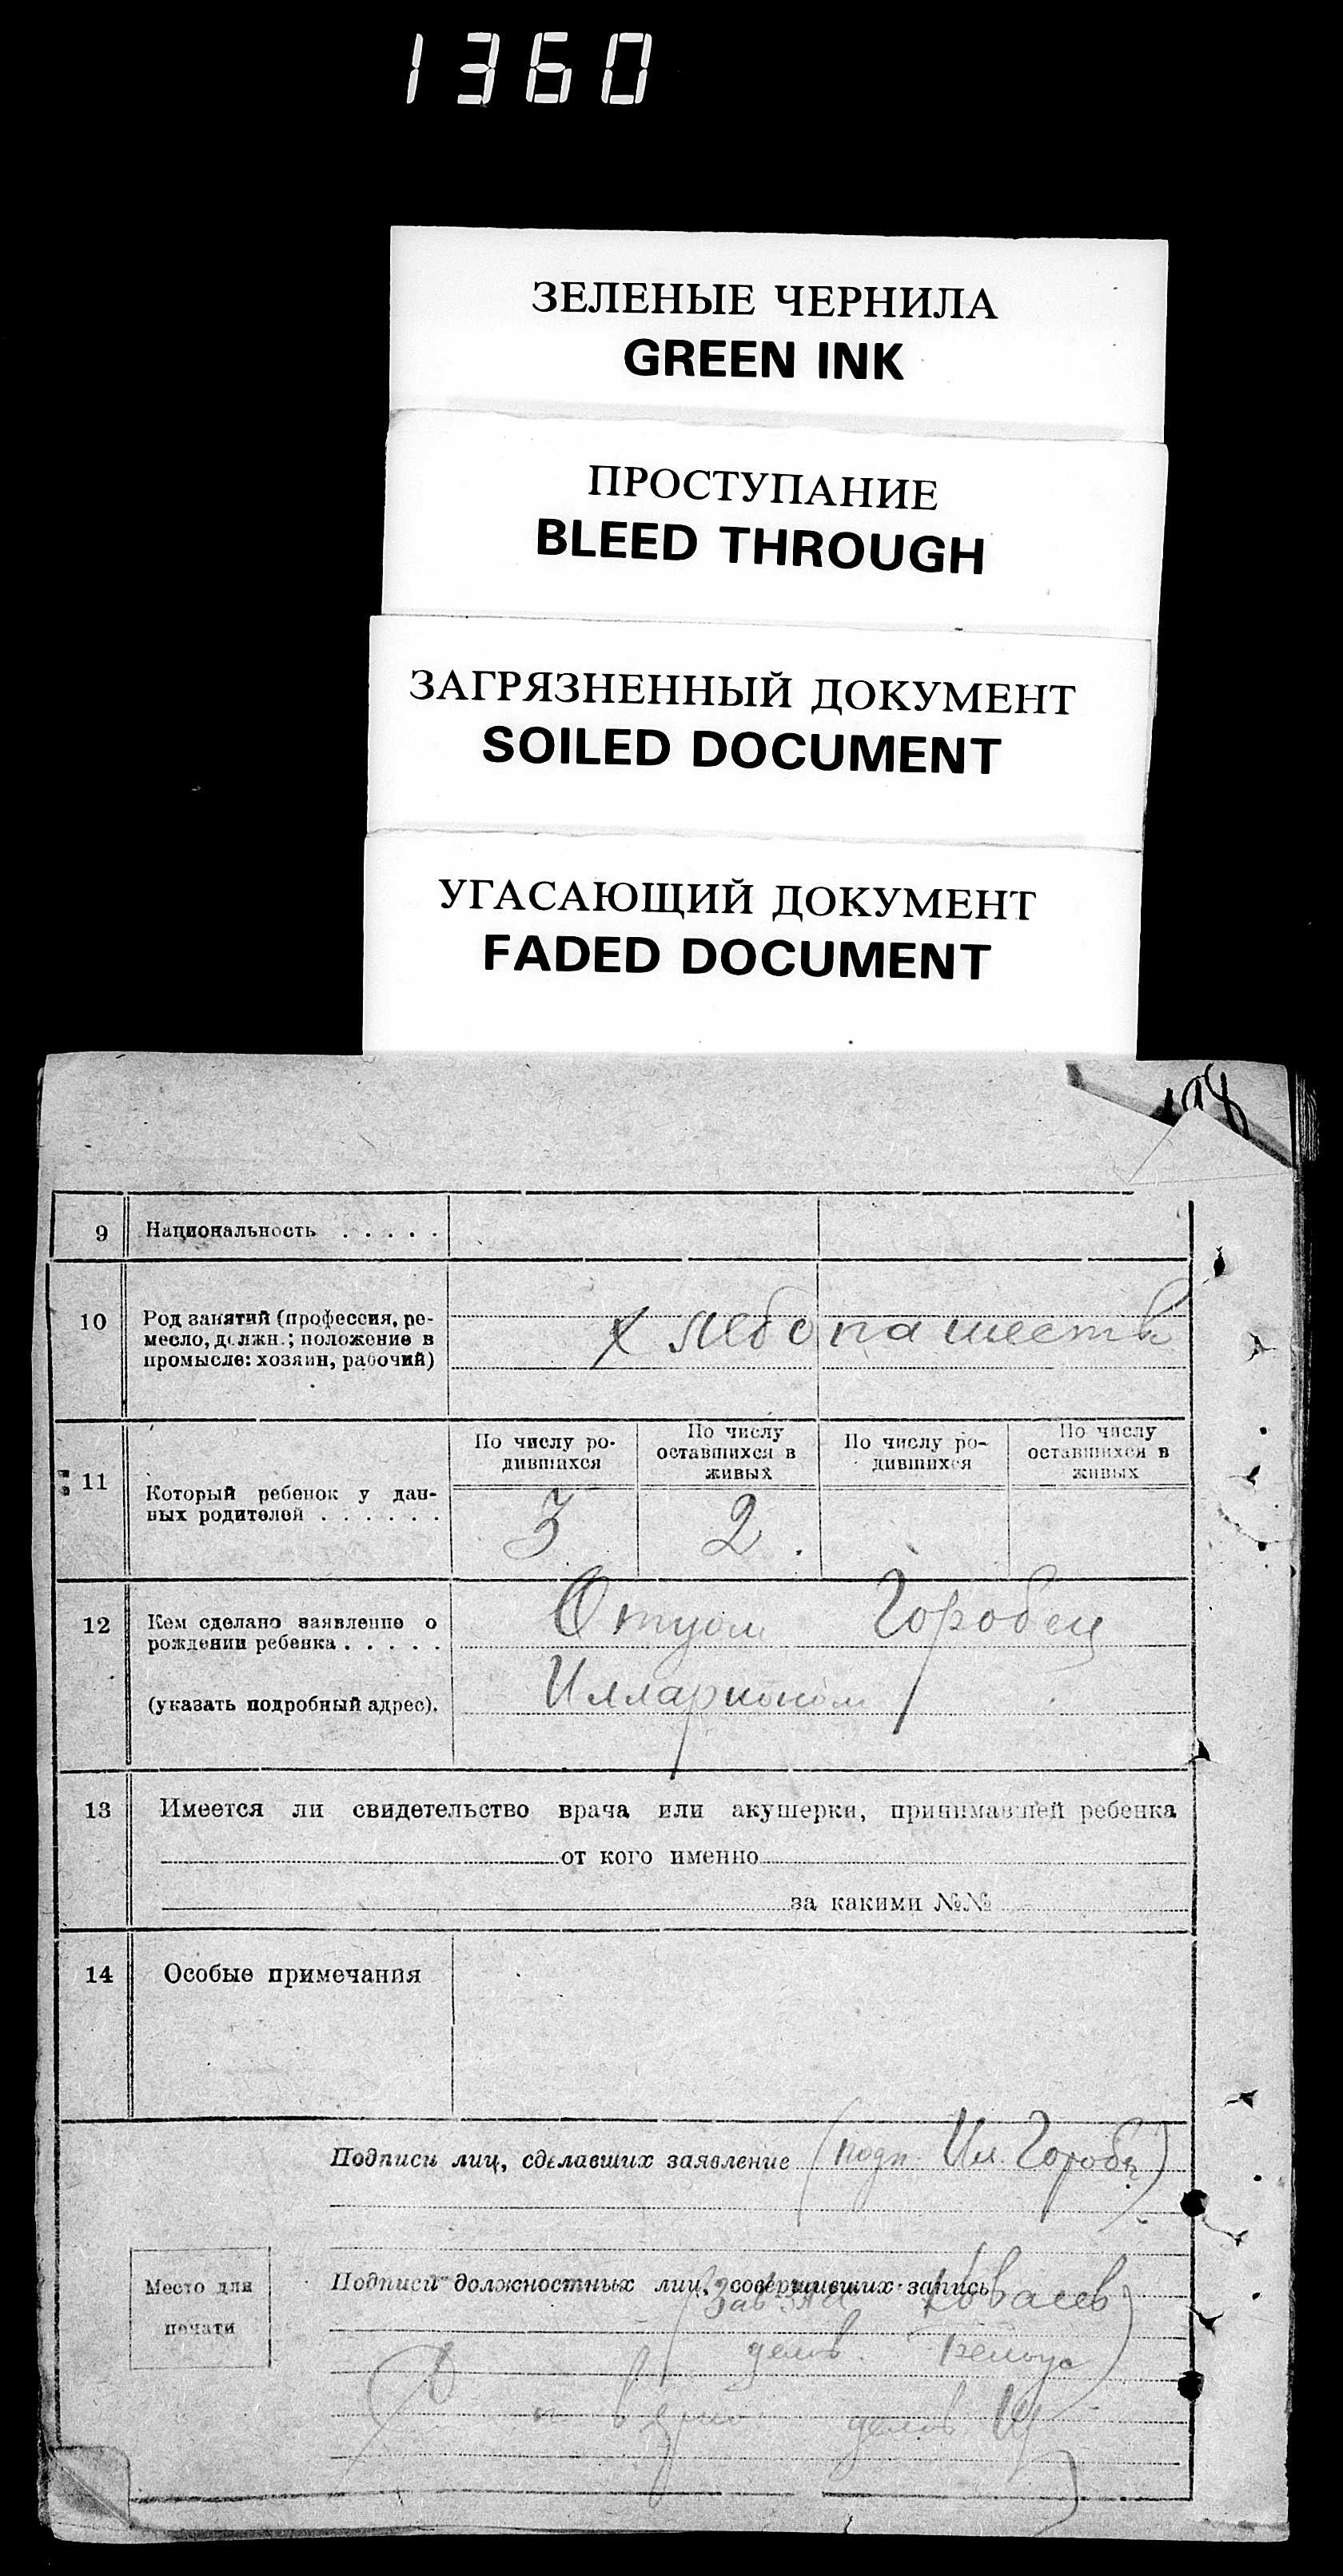 1360
ЗЕЛЕНЫЕ ЧЕРНИЛА
GREEN INK
ПРОСТУПАНИЕ
BLEED THROUGH
ЗАГРЯЗНЕННЫЙ ДОКУМЕНТ
SOILED DOCUMENT
УГАСАЮЩИЙ ДОКУМЕНТ
FADED DOCUMENT
9 Национальность . . . . .
10 Род занятий (профессия, ре-
месло, должн.; положение в
промысле: хозяин, рабочий)
хлебопашеств
11 Который ребенок у дан-
ных родителей . . . . . .
По числу ро-
дившихся
По числу
оставшихся в
живых
По числу ро-
дившихся
По числу
оставшихся в
живых
3 2.
12 Кем сделано заявление о
рождении ребенка . . . . .
(указать подробный адрес).
Отцом Горобец
Илларионом
13 Имеется ли свидетельство врача или акушерки, принимавшей ребенка
от кого именно
за какими №№
14 Особые примечания
Подписи лиц, сделавших заявление (подп. Ил. Горобец)
Место для
печати
Подписи должностных лиц, совершивших запись
Зав
делов.
делов